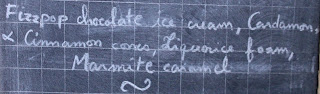 Fizzpop chocolate ice cream, Cardamon,
& Cinnamon cones, Liquorice foam,
Marmite caramel